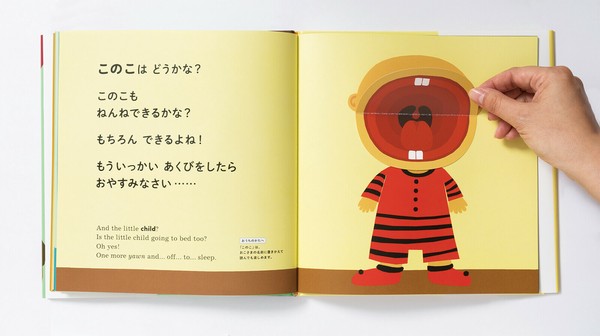 このこは どうかな？
このこも
ねんねできるかな？
もちろん できるよね！
もういっかい あくびをしたら
おやすみなさい……
And the little child?
Is the little child going to bed too?
Oh yes!
One more yawn and... off... to... sleep.
おうちのかたへ
「このこ」は、
おこさまの名前に置きかえて
読んでも楽しめます。